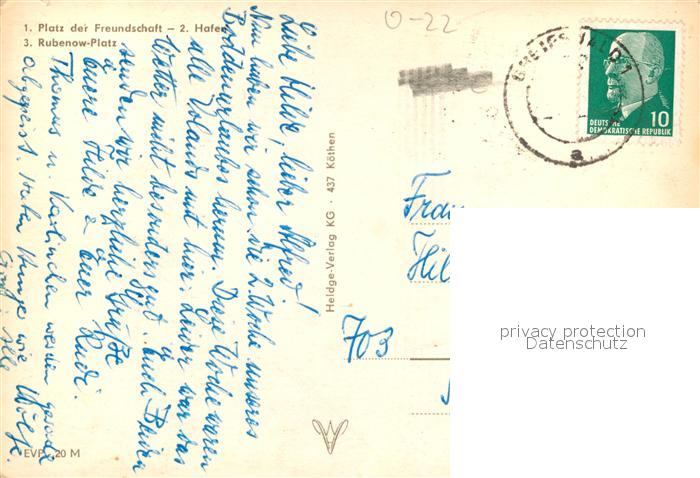 1. Platz der Freundschaft – 2. Hafen
3. Rubenow-Platz
0-22
Liebe Hilde, lieber Alfred!
Nun haben wir schon die 2. Woche unseres
Boddenurlaubes herum. Diese Woche waren
alle Rolands mit hier. Leider war das
Wetter nicht besonders gut. Euch Beiden
senden wir herzliche Grüße
Euere Hilde & Euer Rudi.
Thomas u. Karlinchen werden gerade
wie
Heldge-Verlag KG · 437 Köthen
EVP -,20 M
GREIFSWALD 1
a
10
DEUTSCHE
DEMOKRATISCHE REPUBLIK
Frau
Hil
703
privacy protection
Datenschutz